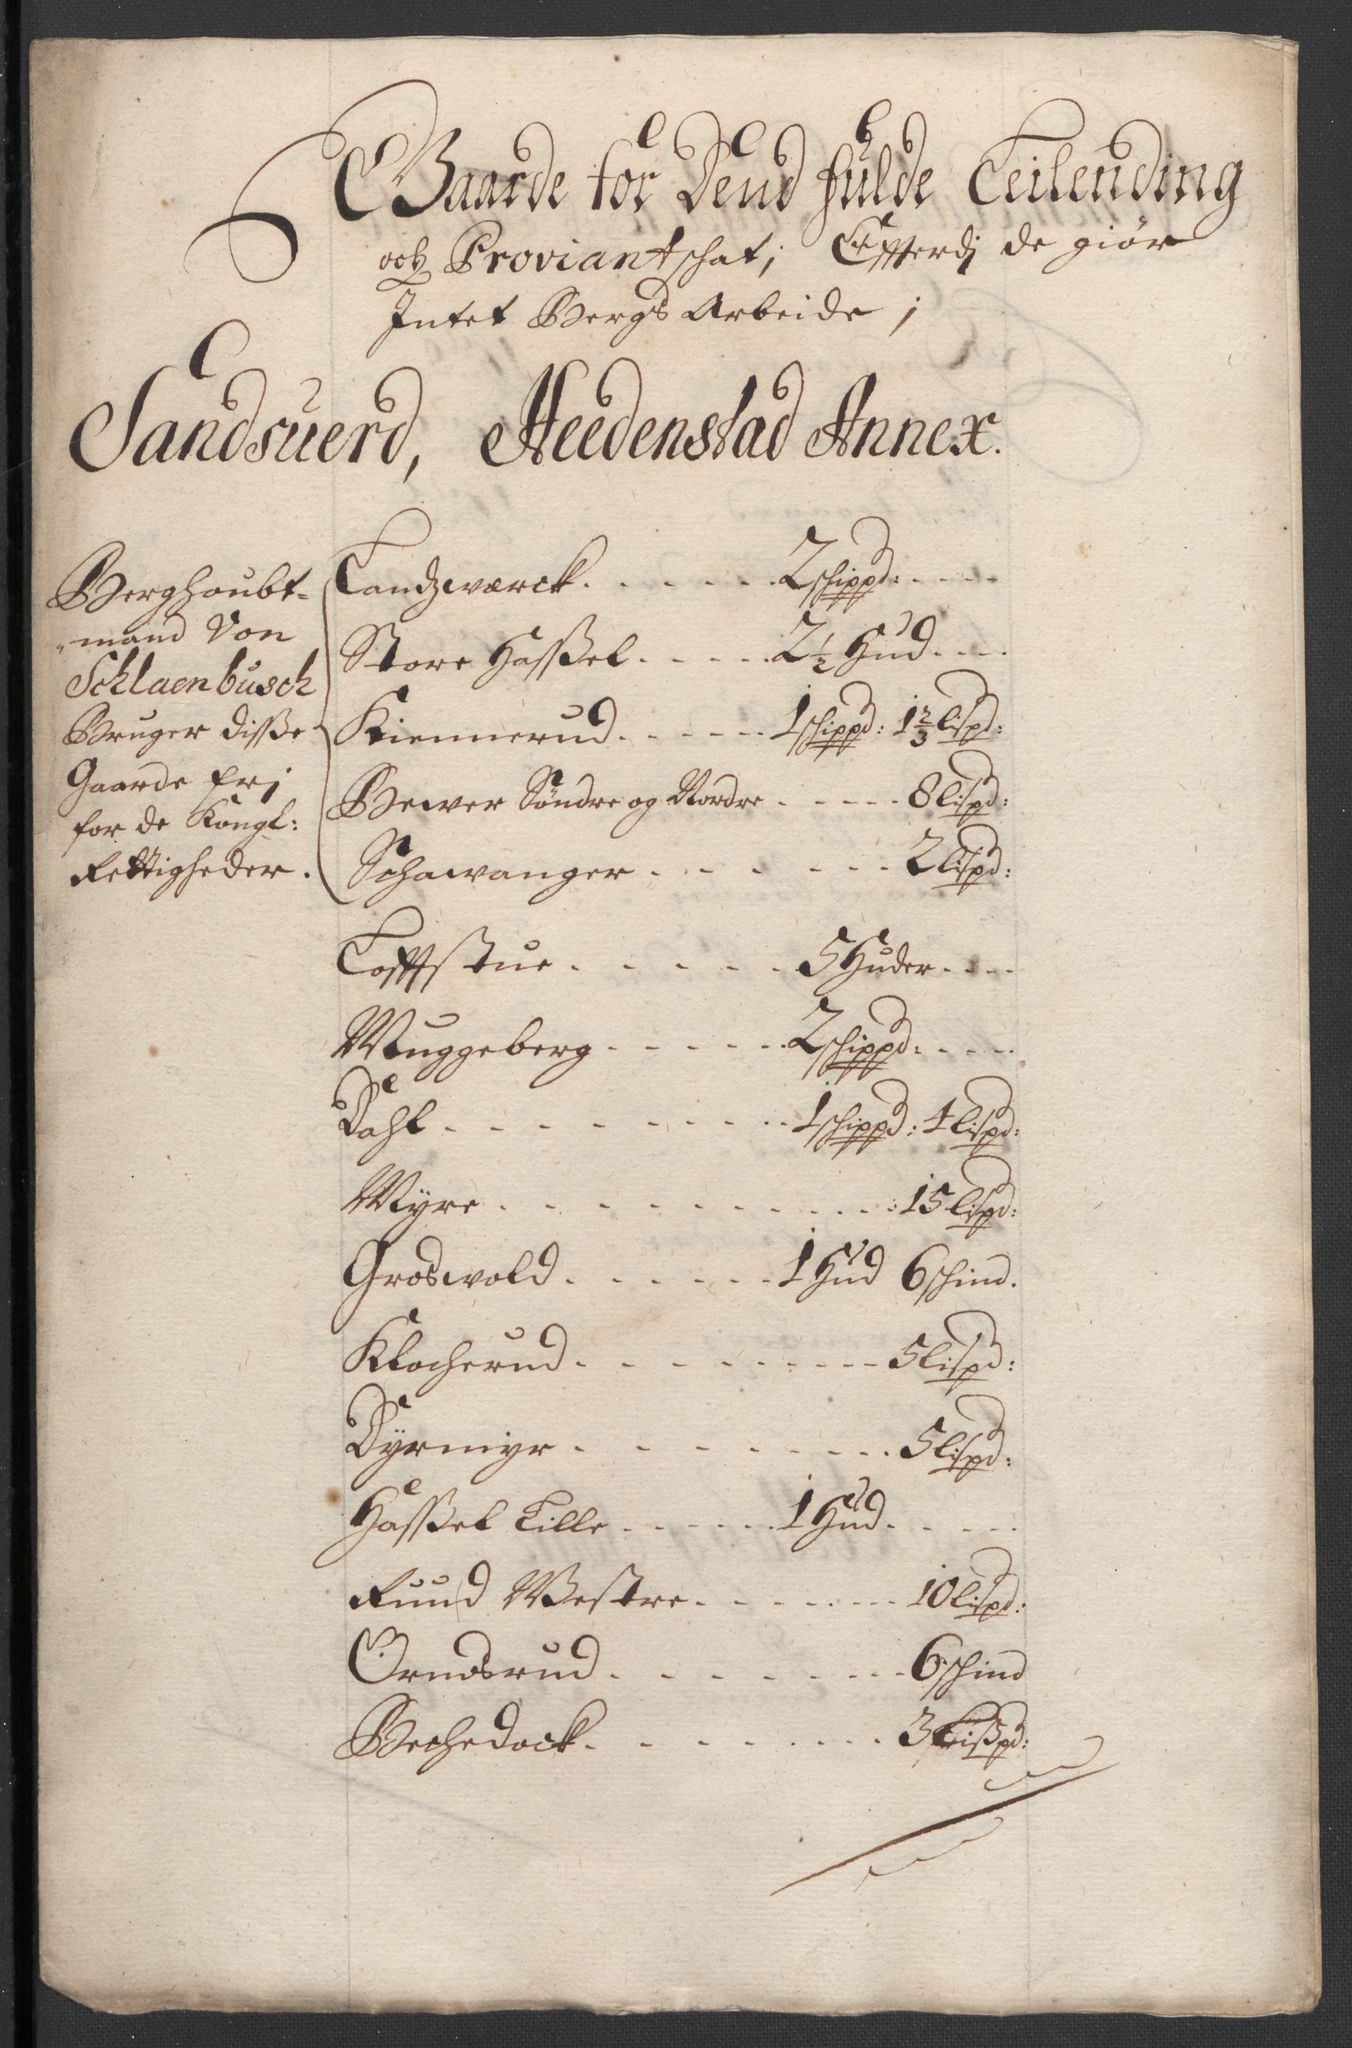 Gaarde for Dend fulde Leilending
och Proviantschat; Effterdj de giör
Intet Bergs Arbeide;
Sandsuerd, Heedenstad Annex.
Berghoubt-
-mand Von
Schlaenbusch
Bruger disße
Gaarde frj
for de Kongl:
Rettigheder.
Landzwærck. . . . . . 2 schippd: . . . .
Store Haßel. . . . . 2 1/2 Hud. . . .
Kiennerud. . . . . . 1 schippd: 1 2/3 lispd:
Bewer Søndre og Nordre . . . . . 8 lispd:
Schawanger . . . . . . 2 lispd:
Tofftstue . . . . . 5 Huder. . . .
Muggeberg . . . . . 2 schippd. . . . .
Dahl . . . . . . . 1 schippd: 4 lispd:
Myre . . . . . . . . . : 15 lispd:
Groswold. . . . . . 1 Hud 6 schind.
Klocherud. . . . . . . . . 5 lispd:
Dyrmyr . . . . . . . . 5 lispd:
Haßel Lille . . . . . . 1 Hud. . . . .
Ruud Westre . . . . . . . 10 lispd:
Orndsrud . . . . . . . . 6 schind
Bechedock. . . . . . . . 3 Lißpd: